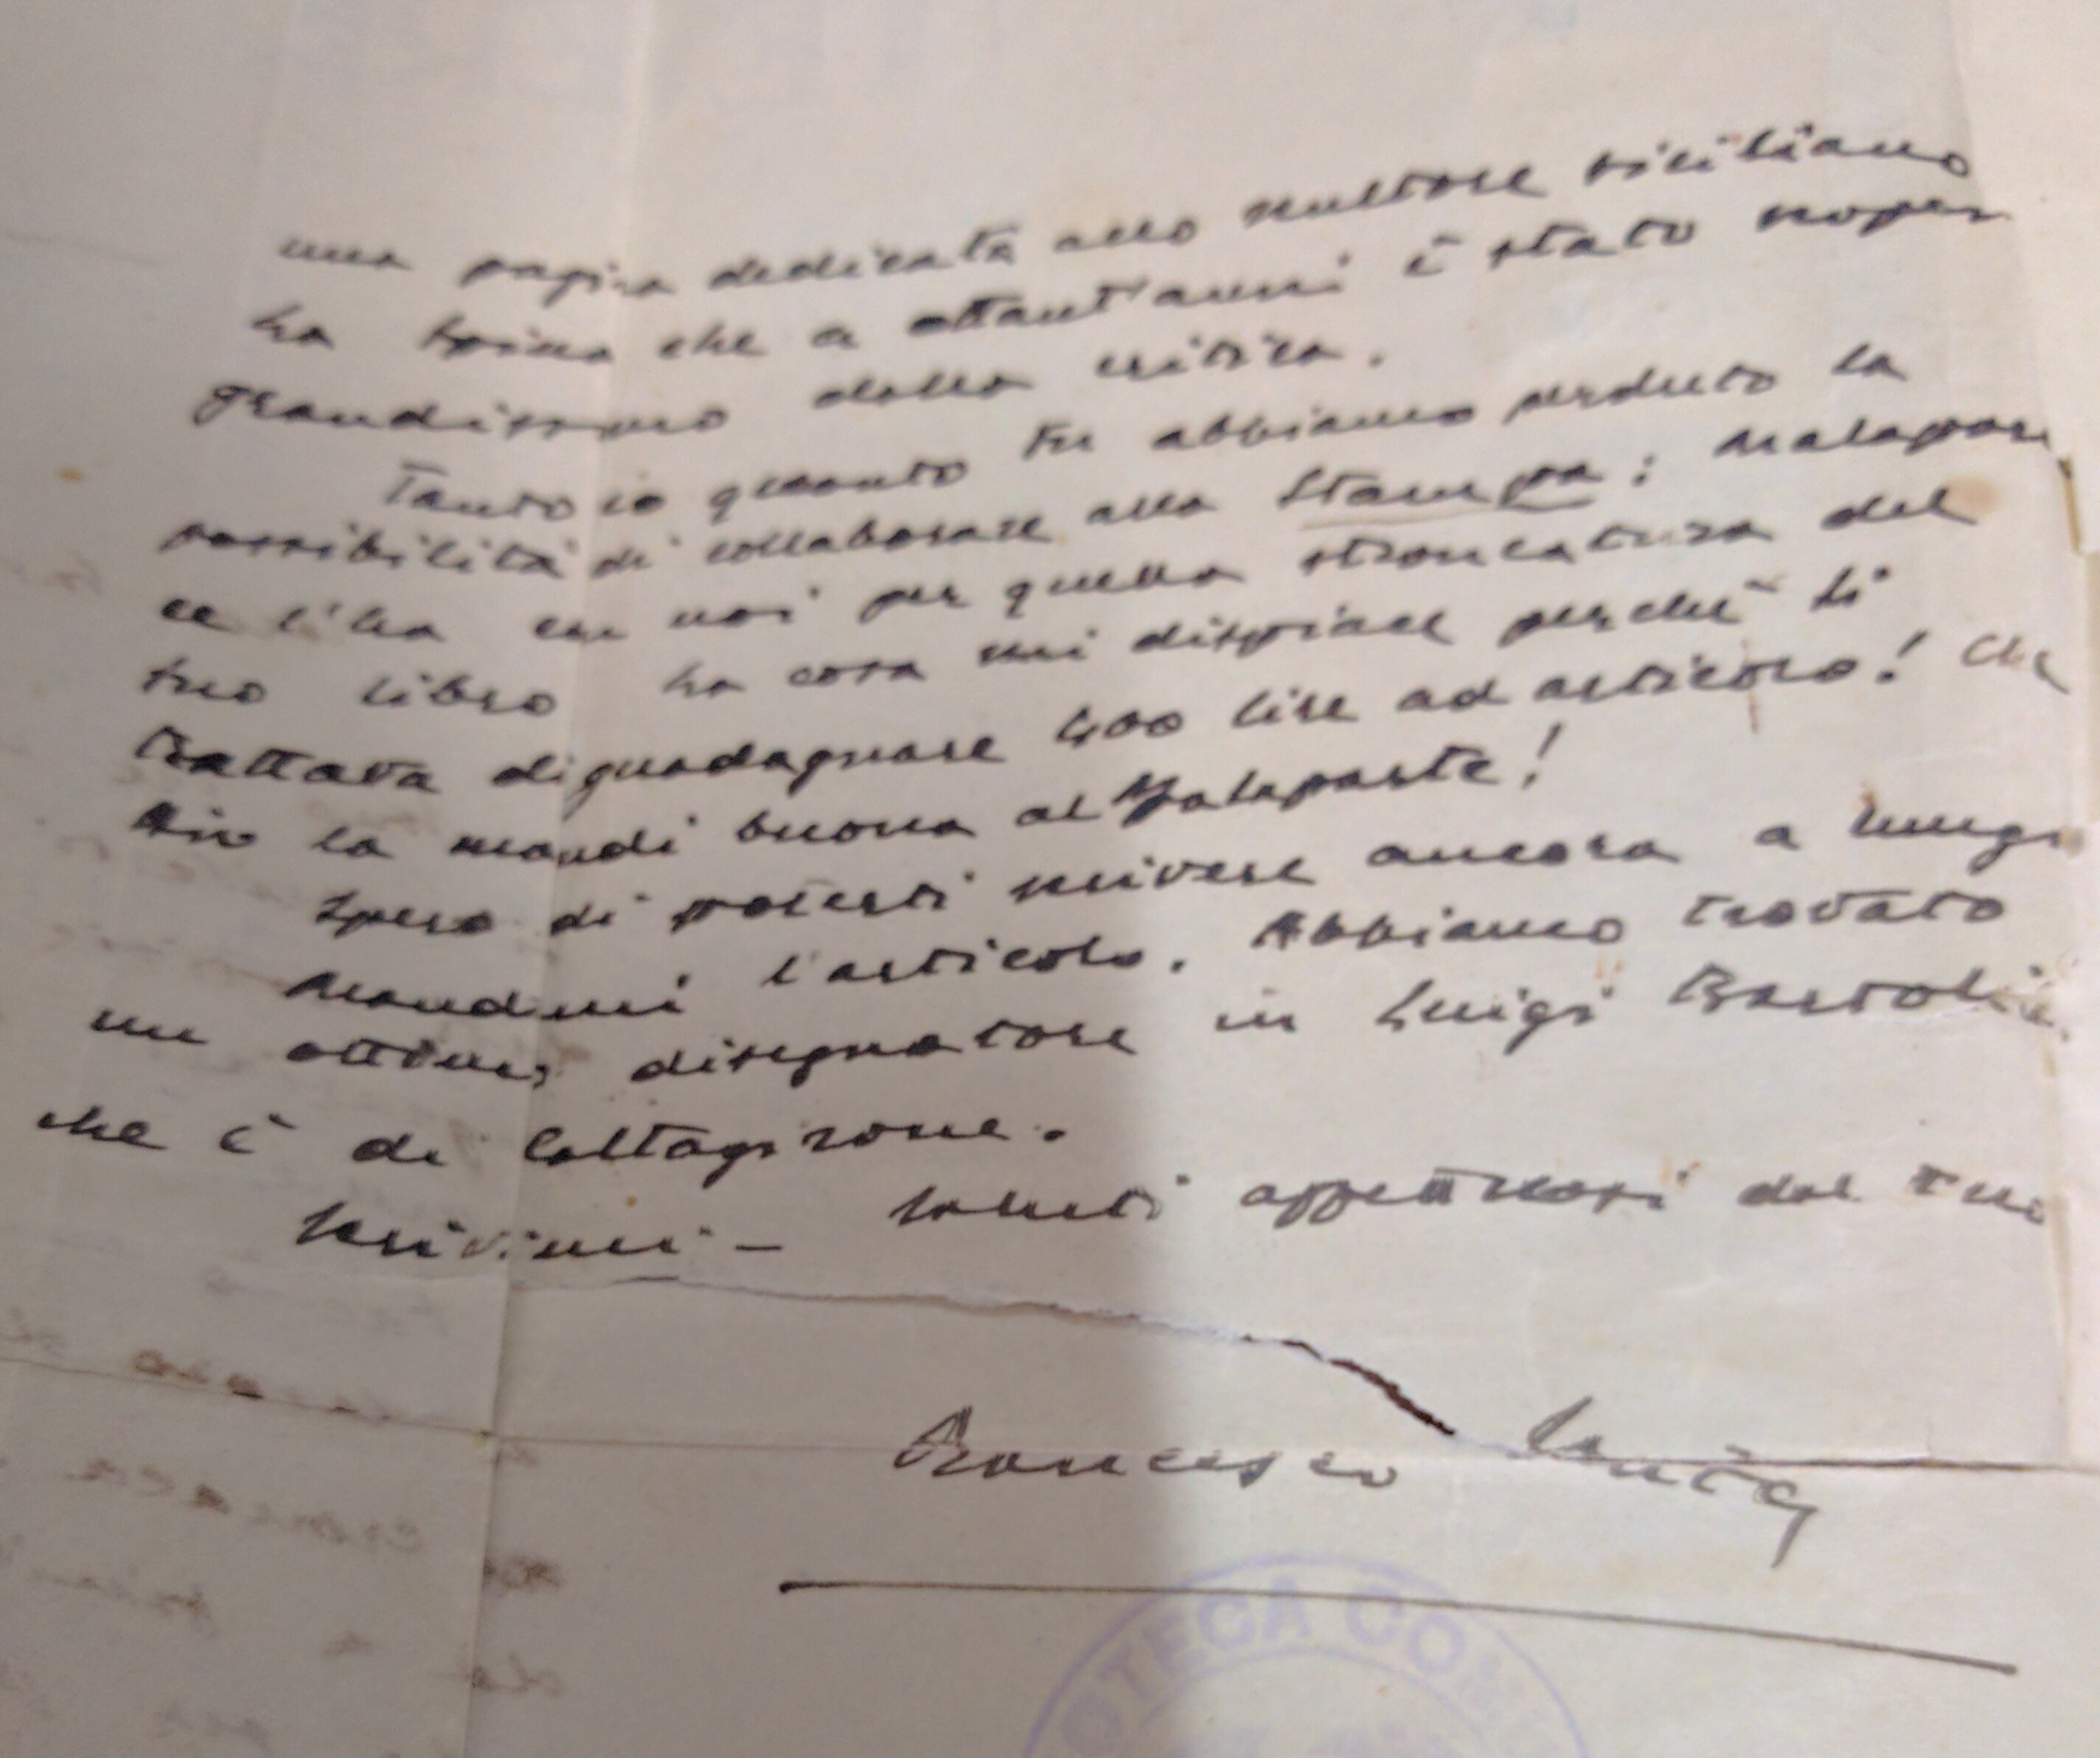 una pagina dedicata allo scultore siciliano
La Spina che a ottant'anni è stato scoper
grandissimo dalla critica.
Tanto io quanto tu abbiamo perduto la
possibilità di collaborare alla Stampa: Malapar
ce l'ha con noi per quella stroncatura del
tuo libro La cosa mi dispiace perchè si
trattava di guadagnare 400 lire ad articolo! Che
Dio la mandi buona al Malaparte!
Spero di poterti scrivere ancora a lungo
Mandami l'articolo. Abbiamo trovato
un ottimo disegnatore in Luigi Bartoli
che è di Caltagirone.
Scrivimi - Saluti affettuosi dal tuo
Francesco
OTECA COM